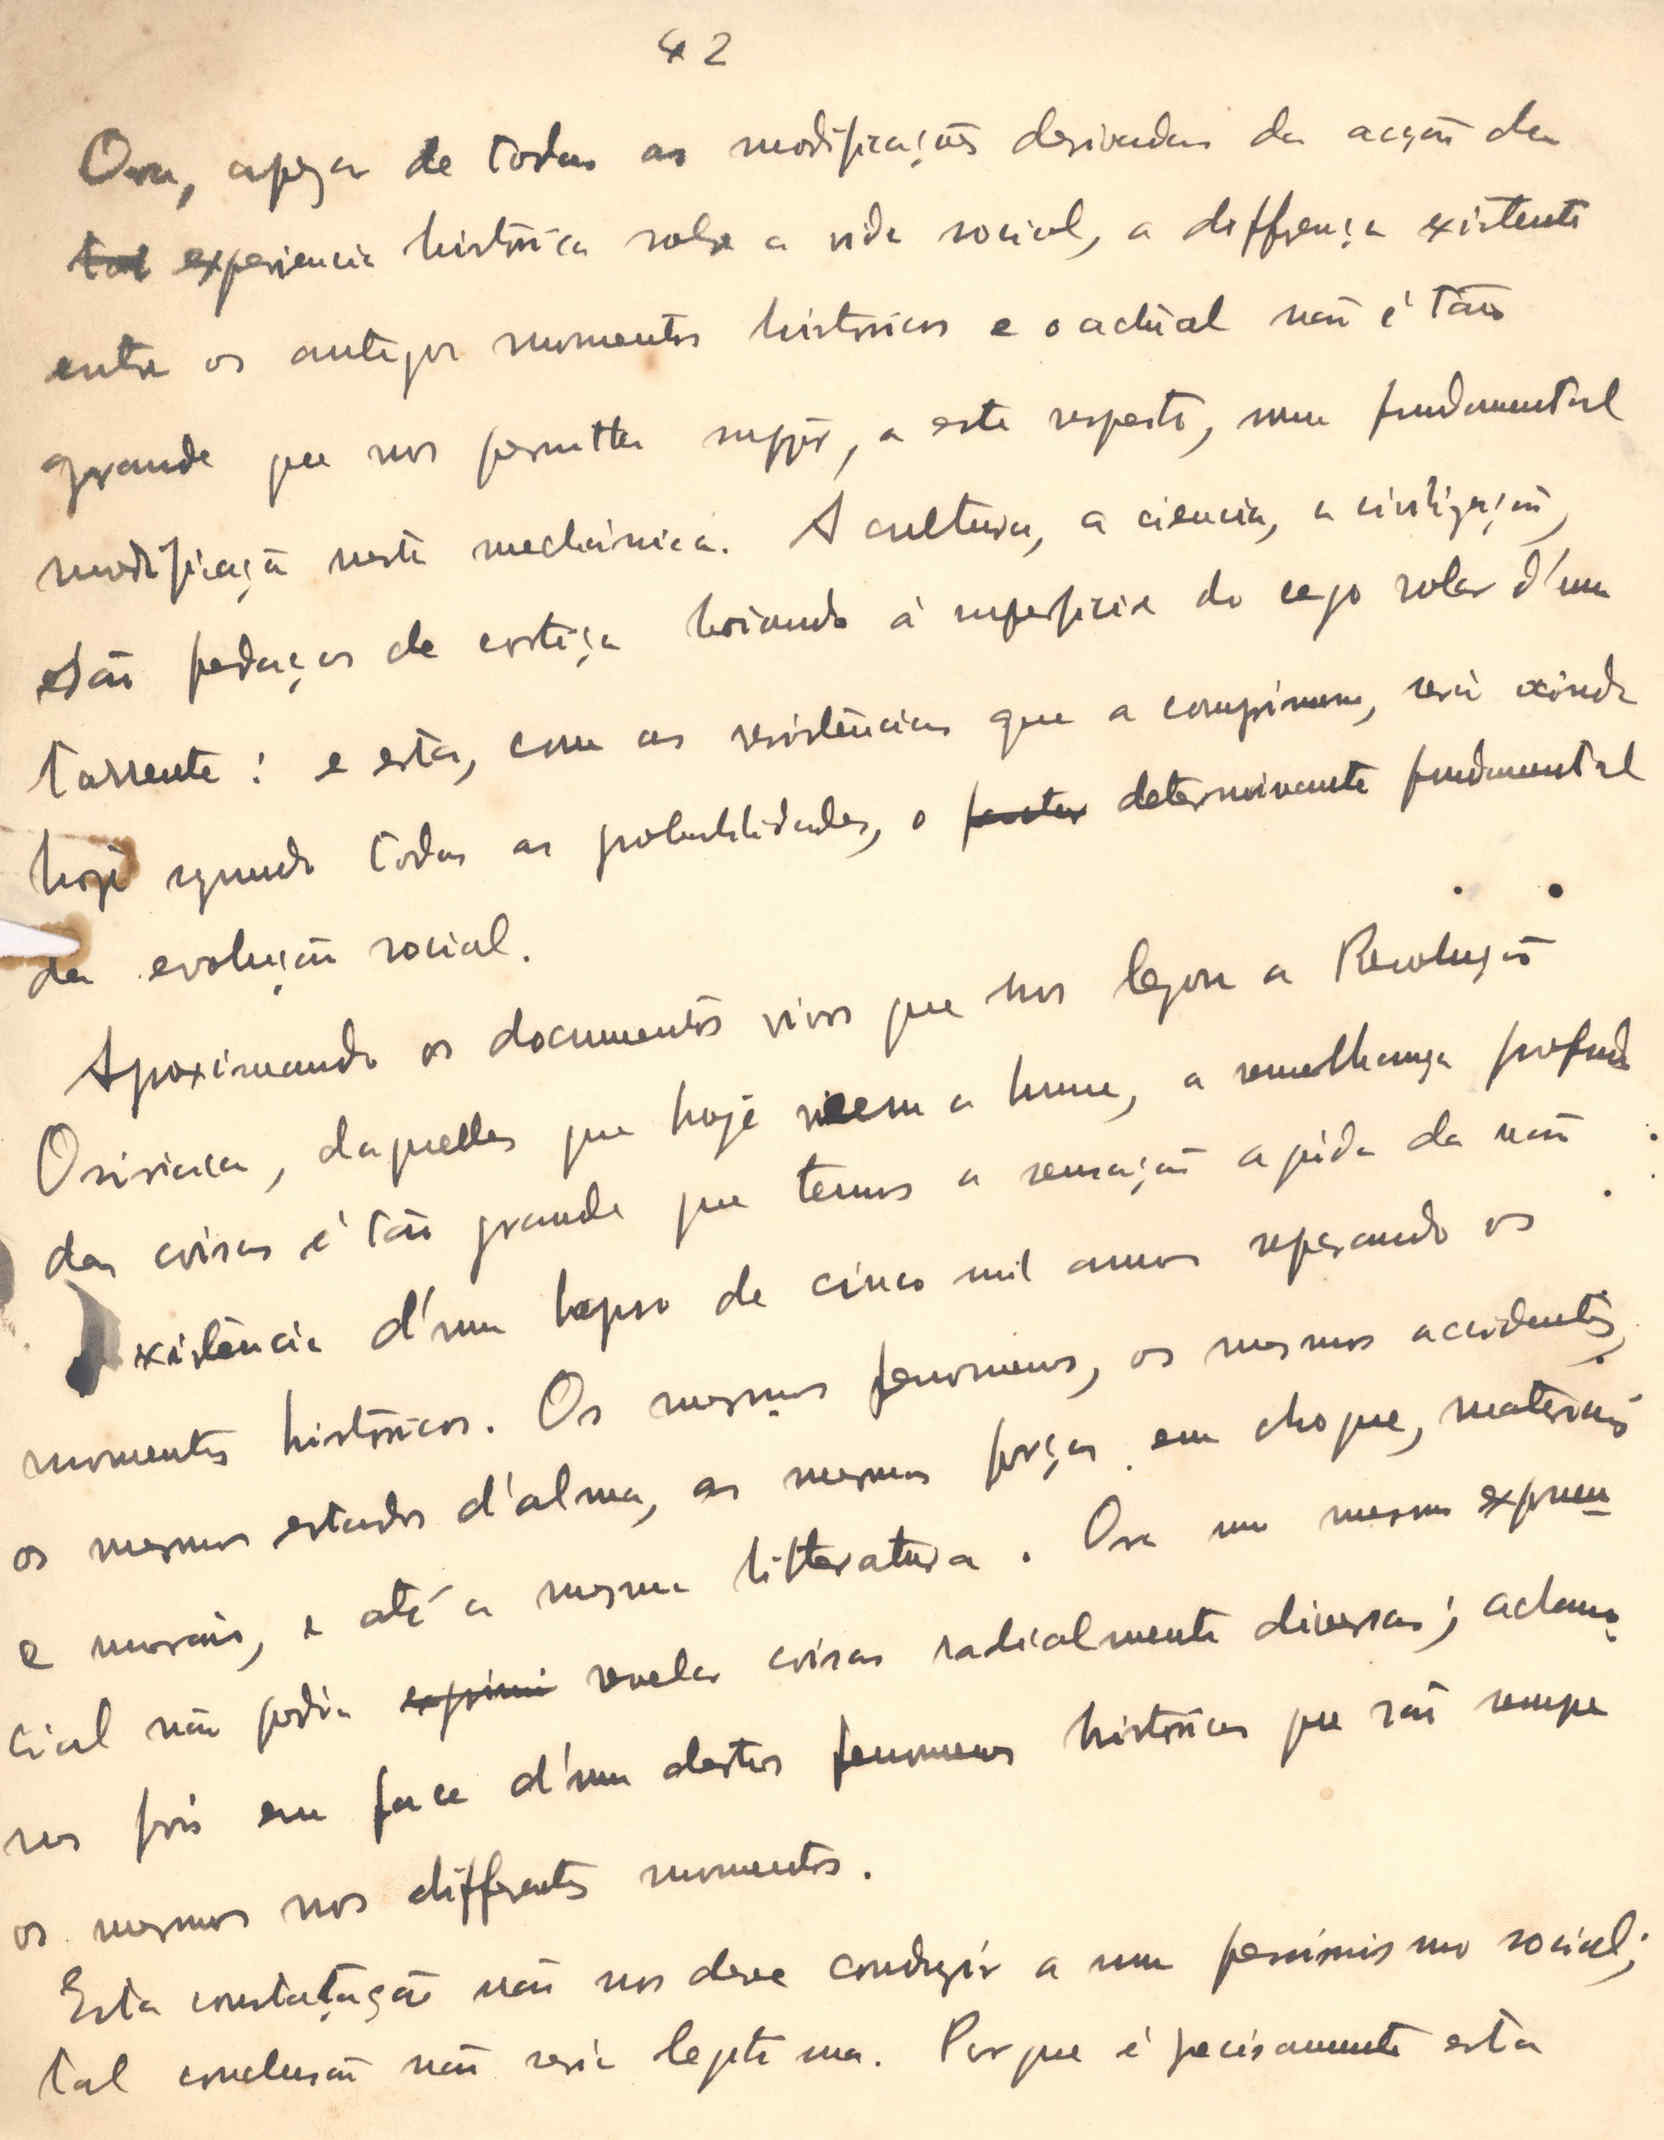 42
Ora, apezar de todas as modificações derivadas da acção da
tal experiencia historica sobre a vida social, a differença existente
entre os antigos momentos historicos e o actual não é tão
grande que nos permitta suppôr, a este respeito, uma fundamental
modificação nesta mechanica. A cultura, a ciencia, a civilização,
são pedaços de cortiça boiando á superficie do cego rolar d'uma
torrente: e esta, com as resistências que a comprimem, será ainda
hoje segundo todas as probabilidades, o factor determinante fundamental
da evolução social.
Aproximando os documentos vivos que nos legou a Revolução
Osiriaca, daquelles que hoje veem a lume, a semelhança profunda
das coisas é tão grande que temos a sensação da não
existência d'um lapso de cinco mil annos separando os
momentos históricos. Os mesmos fenomenos, os mesmos accidentes,
os mesmos estados d'alma, as mesmas forças em choque, materiais
e morais, e até a mesma litteratura. Ora um mesmo
cial não podia exprimir revelar coisas radicalmente diversas;
nos pois em face d'um destes fenomenos historicos que são sempre
os mesmos nos differentes momentos.
Esta constatação não nos deve conduzir a um pessimismo social;
tal conclusão não seria legitima. Porque é precisamente esta